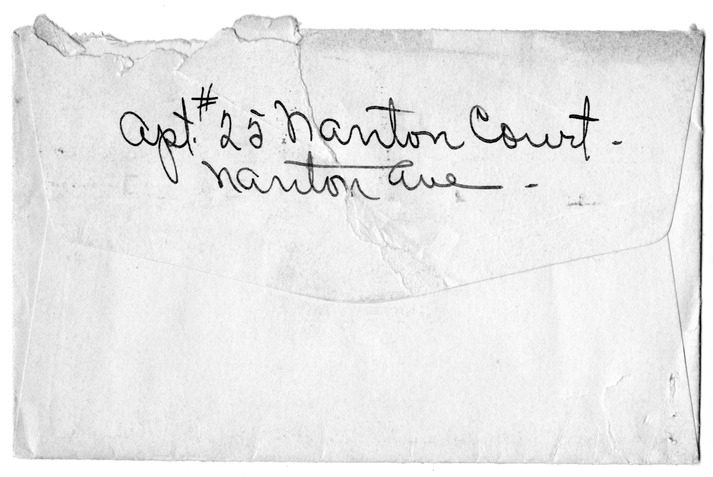 Apt. # 25 Nanton Court.
Nanton Ave -